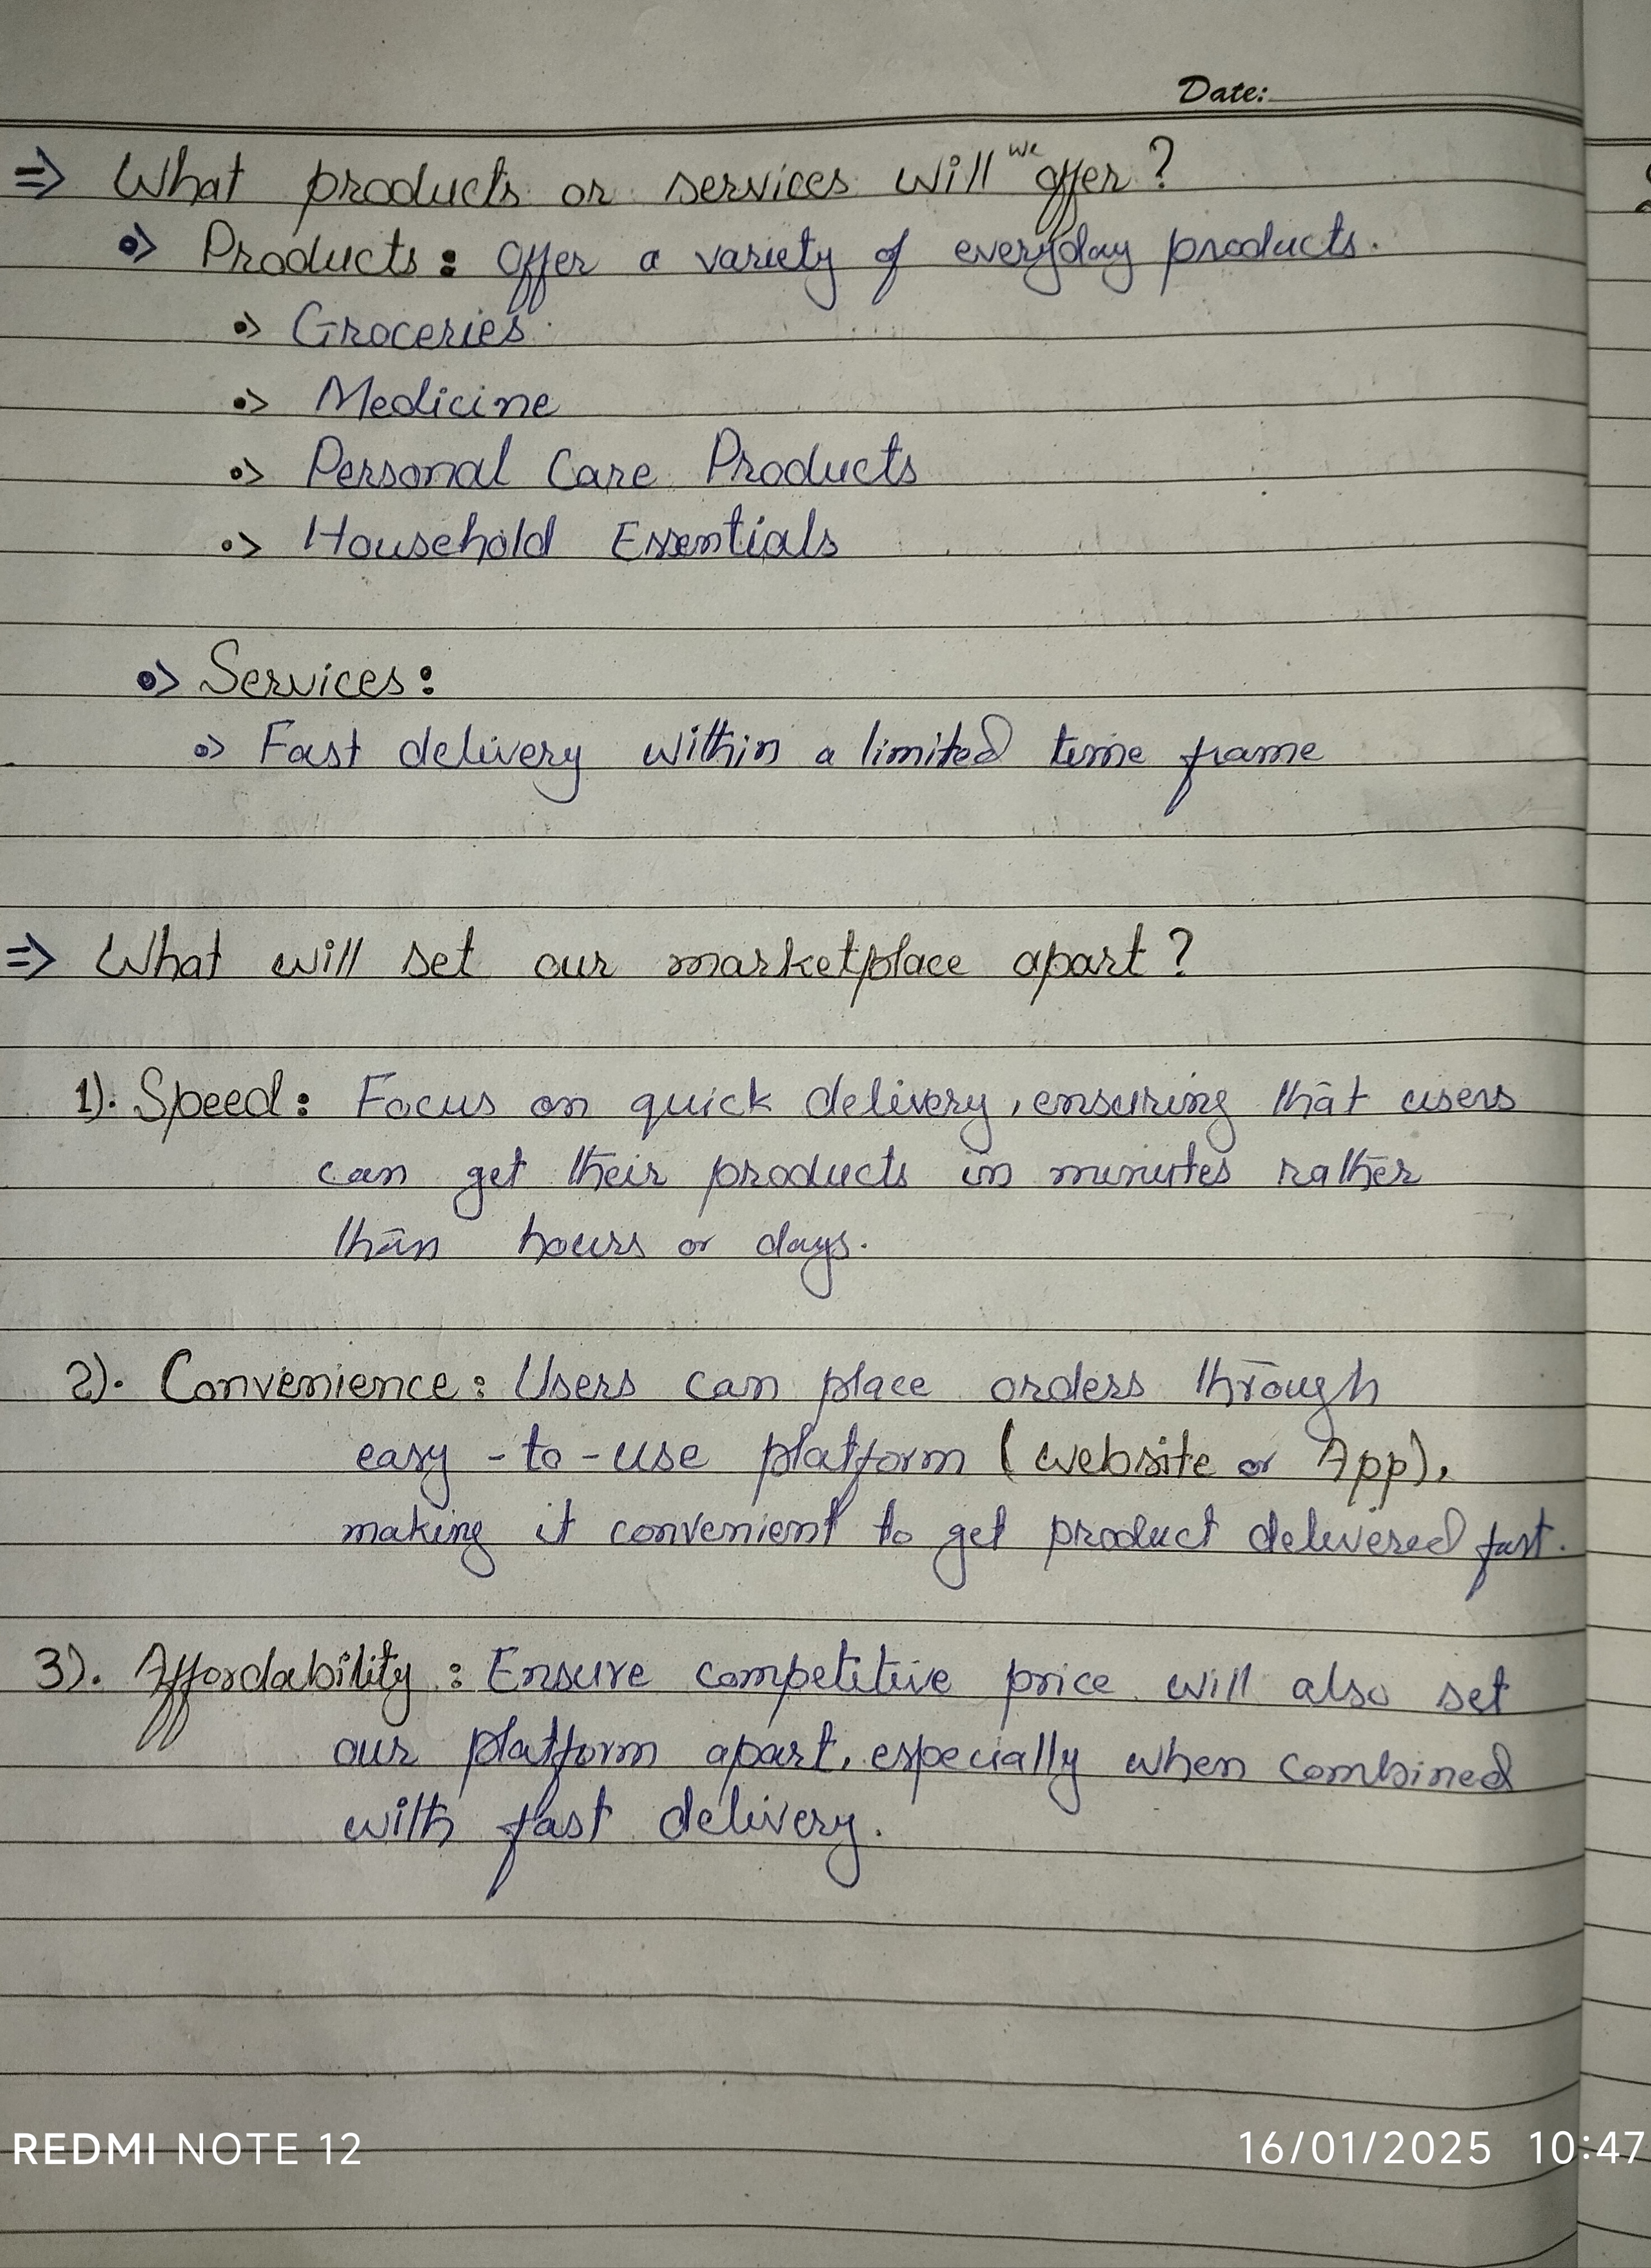 Date:
⇒ What products or services will we offer?
•> Products: Offer a variety of everyday products.
•> Groceries.
•> Medicine
•> Personal Care Products
•> Household Essentials
•> Services:
•> Fast delivery within a limited time frame
⇒ What will set our marketplace apart?
1). Speed: Focus on quick delivery, ensuring that users
can get their products in minutes rather
than hours or days.
2). Convenience: Users can place orders through
easy-to-use platform (website or App),
making it convenient to get product delivered fast.
3). Affordability: Ensure competitive price will also set
our platform apart, especially when combined
with fast delivery.
REDMI NOTE 12
16/01/2025 10:47